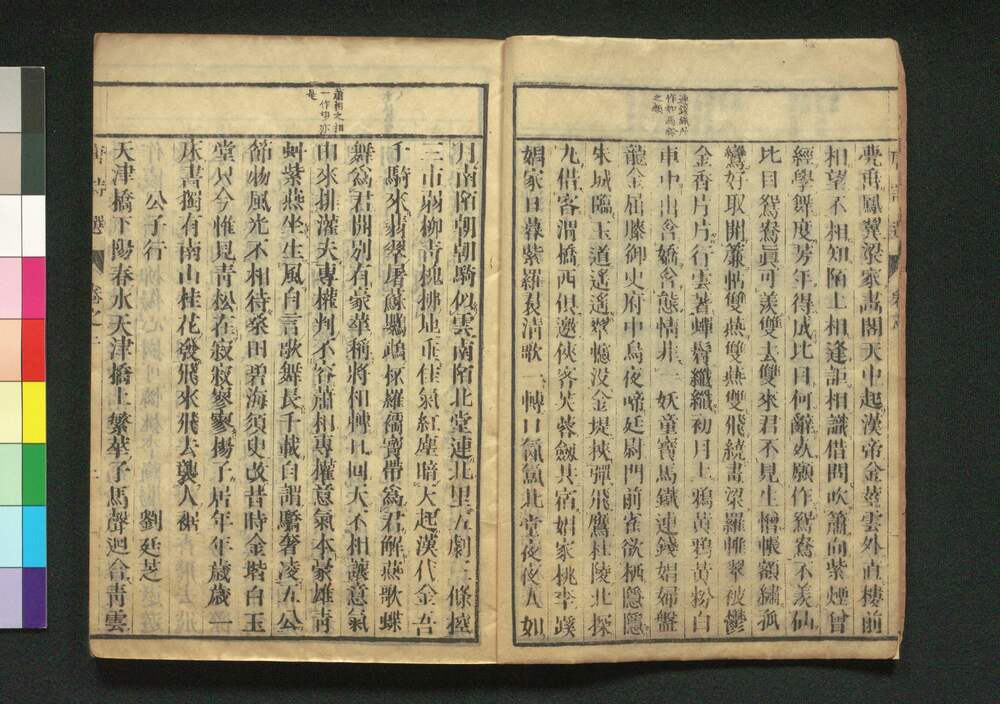 連錢鐵所
作如馬鈴
之類
羗垂鳳翼梁家畵閣天中起漢帝金莖雲外直樓前
相望不相知陌上相逢詎相識借問吹簫向紫煙曾
經學舞度芳年得成比目何辭死願作鴛鴦不羨仙
比目鴛鴦眞可羨雙去雙來君不見生憎帳額繡孤
鸞好取開簾帖雙燕雙燕雙飛繞畫梁羅帷翠被鬱
金香片片行雲著蟬鬢纖纖初月上鴉黃鴉黃粉白
車中出含嬌含態情非一妖童寶馬鐵連錢娼婦盤
龍金屈膝御史府中烏夜啼廷尉門前雀欲栖隱隱
朱城臨玉道遙遙翠幰沒金堤挾彈飛鷹杜陵北探
九借客渭橋西俱邀俠客芙蓉劒共宿娼家桃李蹊
娼家日暮紫羅裙淸歌一囀口氛氳北堂夜夜人如
蕭相之相
一作中亦
是
月南陌朝朝騎似雲南陌北堂連北里五劇三條控
三市弱柳靑槐拂地垂佳氣紅塵暗天起漢代金吾
千騎來翡翠屠蘇鸚鵡杯羅襦寶帶爲君解燕歌蝶
舞爲君開別有豪華稱將相轉日回天不相讓意氣
由來排灌夫專權判不容蕭相專權意氣本豪雄靑
虯紫燕坐生風自言歌舞長千載自謂驕奢凌五公
節物風光不相待桑田碧海須臾改昔時金堦白玉
堂只今惟見靑松在寂寂寥寥揚子居年年歲歲一
床書獨有南山桂花發飛來飛去襲人裾
公子行
劉廷芝
天津橋下陽春水天津橋上繁華子馬聲迴合靑雲
唐詩選
卷之二